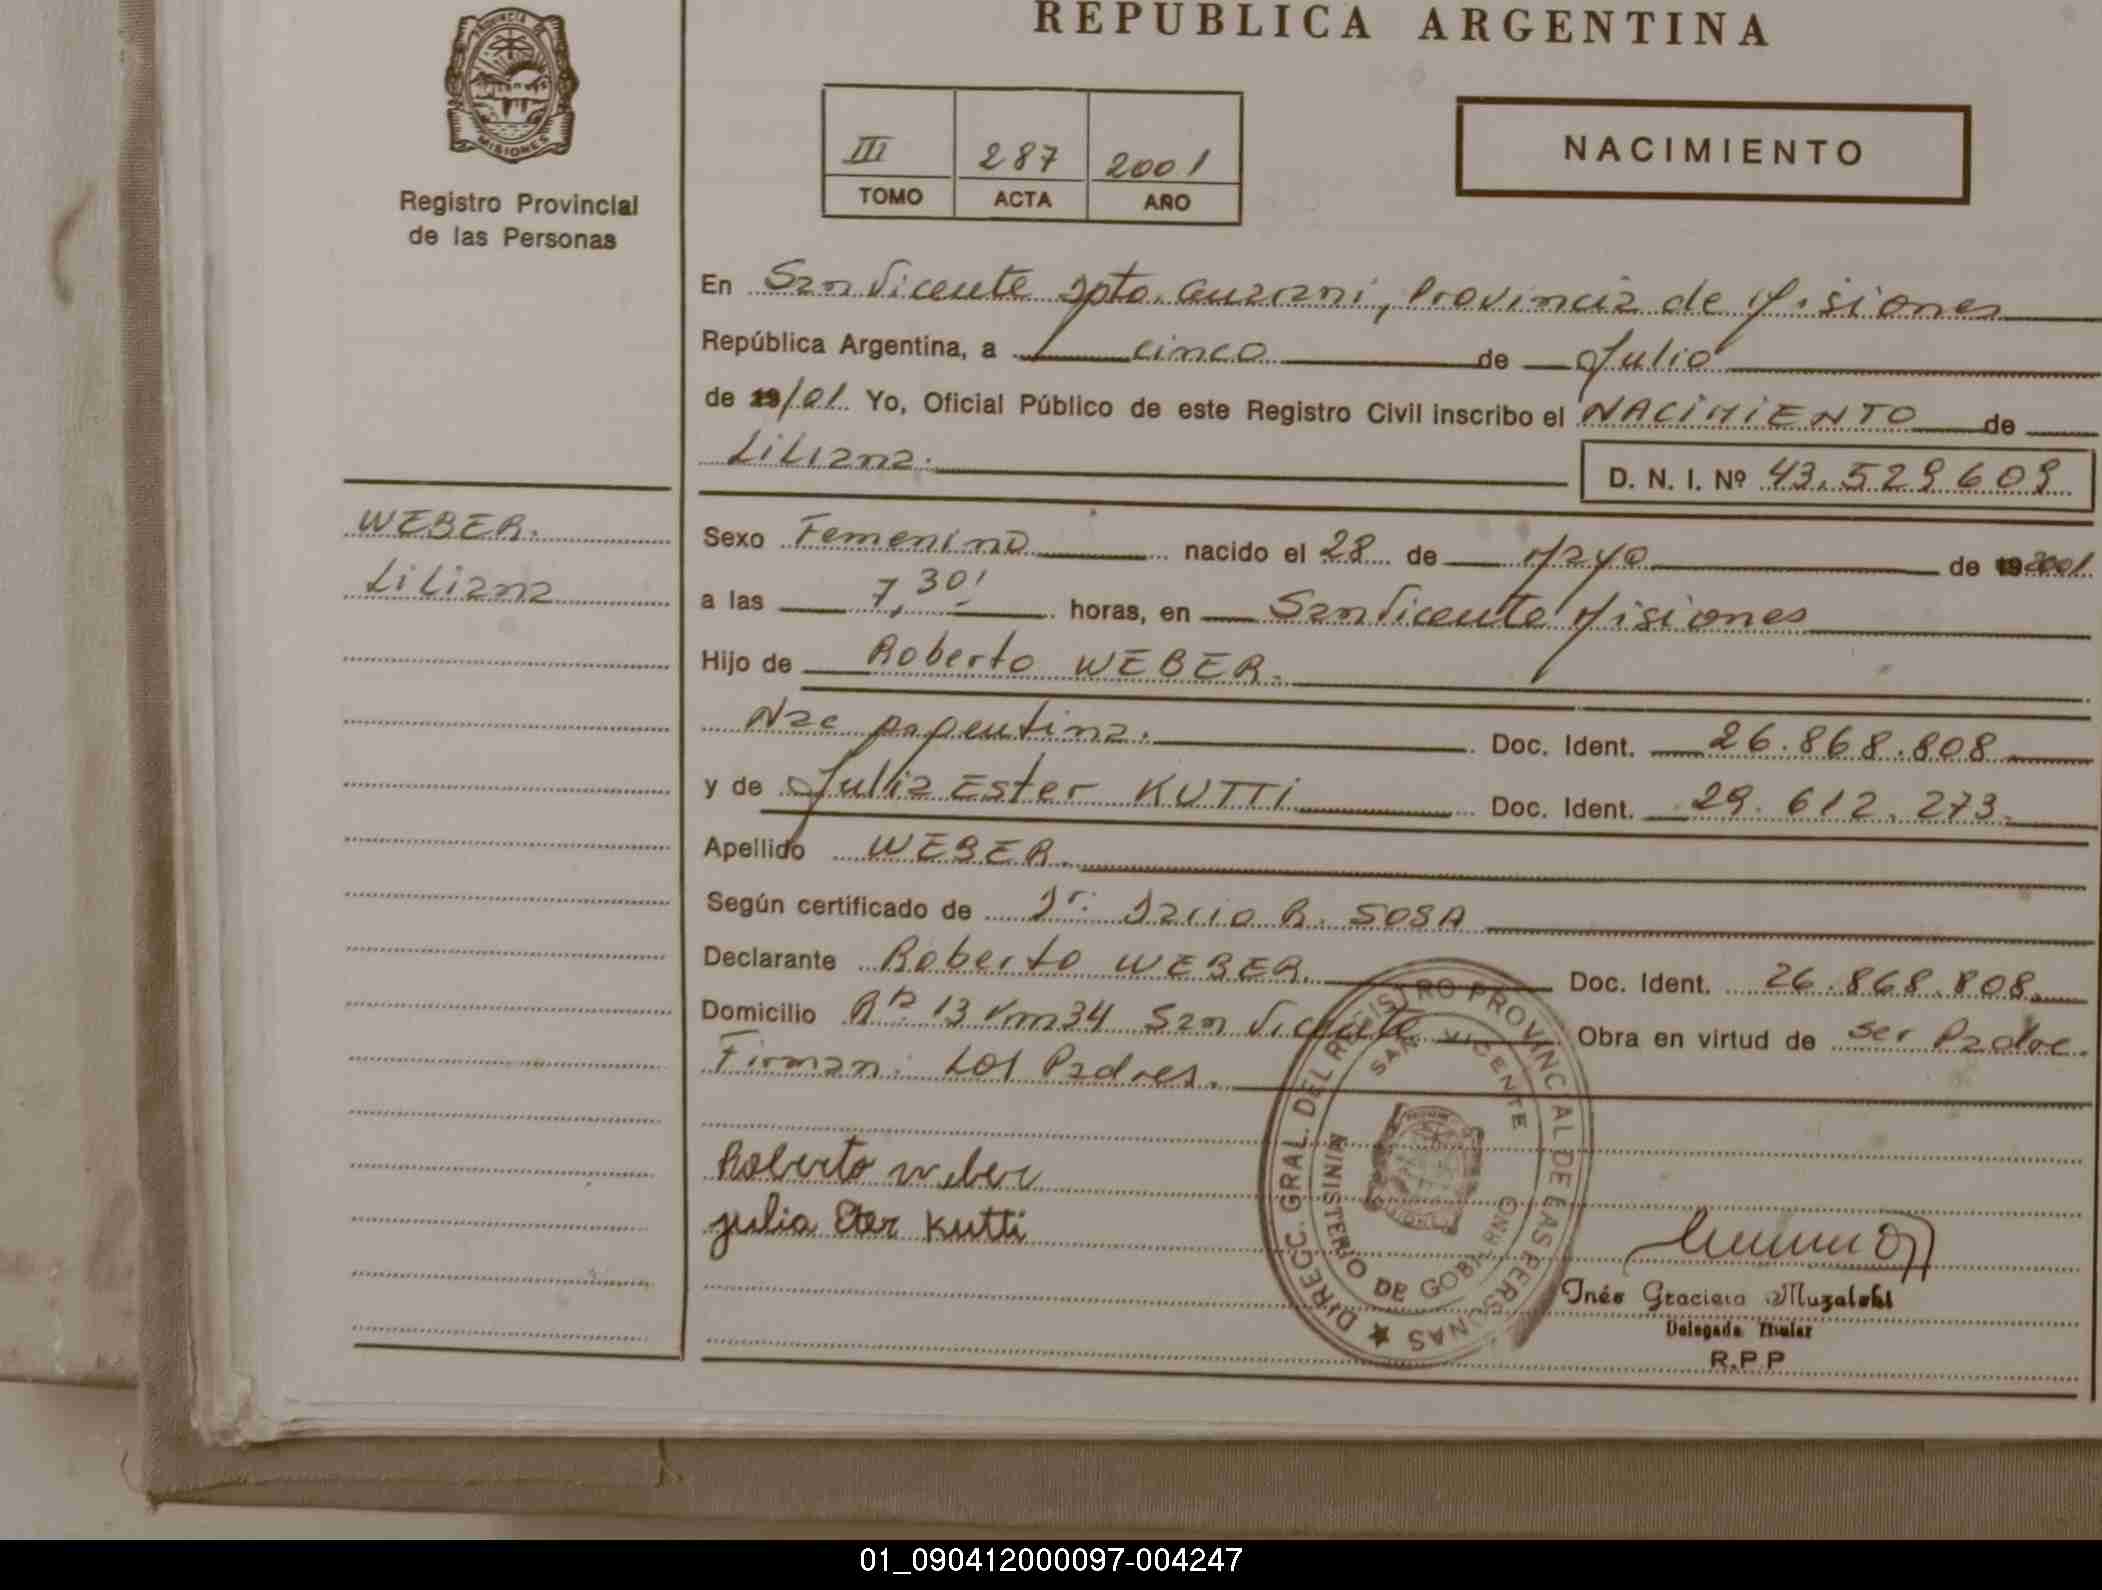 REPUBLICA ARGENTINA
PROVINCIA DE
MISIONES
Registro Provincial
de las Personas
III 287 2001
TOMO ACTA AÑO
NACIMIENTO
En San Vicente Dpto. Guarani, Provincia de Misiones
República Argentina, a cinco de Julio
de 19/01. Yo, Oficial Público de este Registro Civil inscribo el NACIMIENTO de
Liliana.
D. N. I. Nº 43.529609
WEBER.
Liliana
Sexo Femenino nacido el 28 de Mayo de 19 2001
a las 7,30' horas, en San Vicente Misiones
Hijo de Roberto WEBER.
Nac Argentina. Doc. Ident. 26.868.808
y de Julia Ester KUTTI Doc. Ident. 29.612.273.
Apellido WEBER.
Según certificado de Dr. Dario R. SOSA
Declarante Roberto WEBER. Doc. Ident. 26.868.808.
Domicilio Rta 13 Km34 San Vicente Obra en virtud de ser Padre.
Firman: Los Padres.
Roberto weber
julia Eter Kutti
DIRECC. GRAL. DEL REGISTRO PROVINCIAL DE LAS PERSONAS
SAN VICENTE
MINISTERIO DE GOBIERNO
Inés Graciela Muzalski
Delegada Titular
R.P.P
01_090412000097-004247